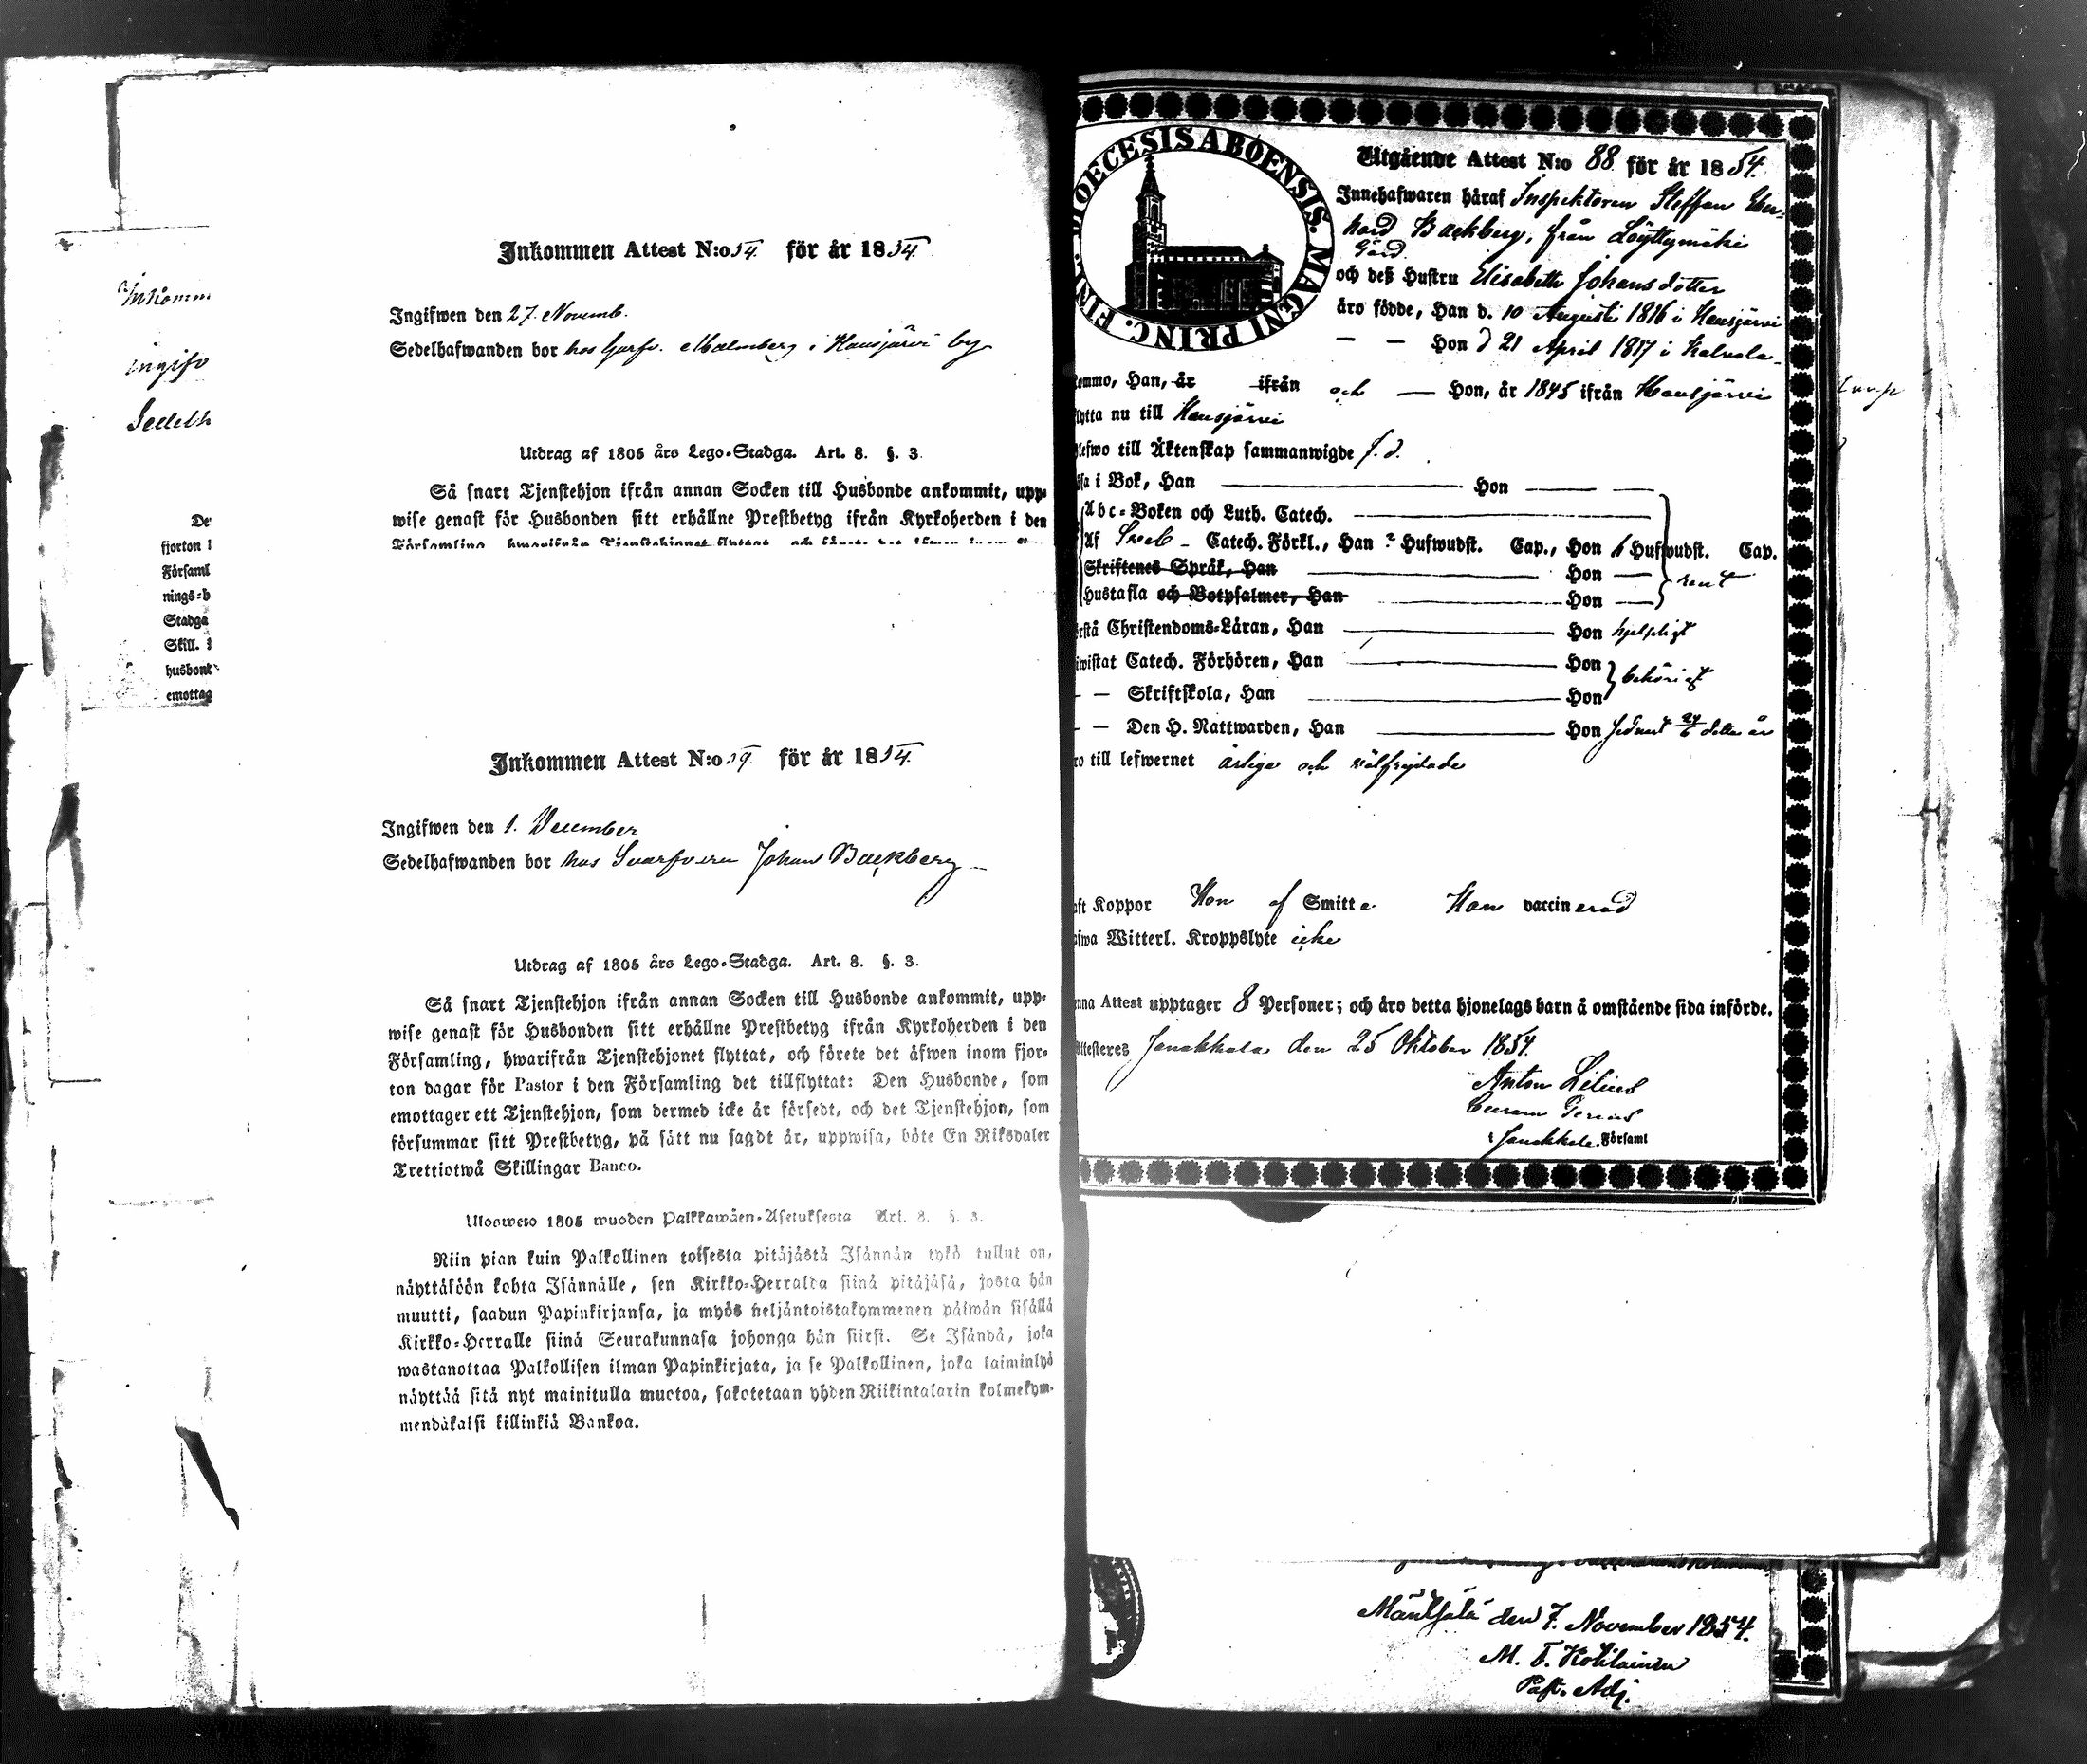 Inkomm
ingifv
Sedelh
De
fjorton
Församl
nings=b
Stadga
Skill.
husbond
emottag
Inkommen Attest N:o 54. för år 1854.
Ingifwen den 27. Novemb.
Sedelhafwanden bor hos Garfv. Malmberg i Hausjärvi by
Utdrag af 1805 års Lego-Stadga. Art. 8. §. 3.
Så snart Tjenstehjon ifrån annan Socken till Husbonde ankommit, upp=
wise genast för Husbonden sitt erhållne Prestbetyg ifrån Kyrkoherden i den
Församling, hwarifrån Tjenstehjonet flyttat, och förete det äfwen inom
Inkommen Attest N:o 59. för år 1854.
Ingifwen den 1. December
Sedelhafwanden bor hos Svarfvaren Johan Backberg
Utdrag af 1805 års Lego-Stadga. Art. 8. §. 3.
Så snart Tjenstehjon ifrån annan Socken till Husbonde ankommit, upp=
wise genast för Husbonden sitt erhållne Prestbetyg ifrån Kyrkoherden i den
Församling, hwarifrån Tjenstehjonet flyttat, och förete det äfwen inom fjor=
ton dagar för Pastor i den Församling det tillflyttat: Den Husbonde, som
emottager ett Tjenstehjon, som dermed icke är försedt, och det Tjenstehjon, som
försummar sitt Prestbetyg, på sätt nu sagdt är, uppwisa, böte En Riksdaler
Trettiotwå Skillingar Banco.
Ulosweto 1805 wuoden Palkkawäen-Asetuksesta Art. 8. §. 3.
Niin pian kuin Palkollinen toisesta pitäjästä Isännän tykö tullut on,
näyttäköön kohta Isännälle, sen Kirkko=Herralda siinä pitäjäsä, josta hän
muutti, saadun Papinkirjansa, ja myös neljäntoistakymmenen päiwän sisällä
Kirkko=Herralle siinä Seurakunnasa johonga hän siirsi. Se Isändä, joka
wastanottaa Palkollisen ilman Papinkirjata, ja se Palkollinen, joka laiminlyö
näyttää sitä nyt mainitulla muotoa, sakotetaan yhden Riikintalarin kolmekym=
mendäkaksi killinkiä Bankoa.
DIOECESIS ABOENSIS. MAGNI PRINC. FINL.
Utgående Attest N:o 88 för år 1854.
Innehafwaren häraf Inspektoren Steffan Eber=
hard Backberg, från Löyttymäki
Gård
och deß Hustru Elisabeth Johansdotter
äro födde, Han d. 10 Augusti 1816 i Hausjärvi
— — Hon d 21 April 1817 i Kalvola
kommo, Han, år ifrån och — Hon, år 1845 ifrån Hausjärvi
flytta nu till Hausjärvi
blefwo till Äktenskap sammanwigde f. d.
läsa i Bok, Han — Hon —
Abc=Boken och Luth. Catech.
Af Sveb — Catech. Förkl., Han Hufwudst. Cap., Hon 6 Hufwudst. Cap.
Skriftenes Språk, Han — Hon — rent
Hustafla och Botpsalmer, Han — Hon —
förstå Christendoms=Läran, Han — Hon hjelpligt
biwistat Catech. Förhören, Han — Hon
— — Skriftskola, Han — Hon behörigt
— — Den H. Nattwarden, Han — Hon sednast 24/6 detta år
äro till lefwernet ärliga och välfrejdade
haft Koppor Hon af Smitta Han vaccinerad
hafwa Witterl. Kroppslyte icke
Denna Attest upptager 8 Personer; och äro detta hjonelags barn å omstående sida införde.
Attesteras Janakkala den 25 Oktober 1854.
Anton Lilius
i Janakkala Församl
Mäntsälä den 7. November 1854.
Past. Adj.